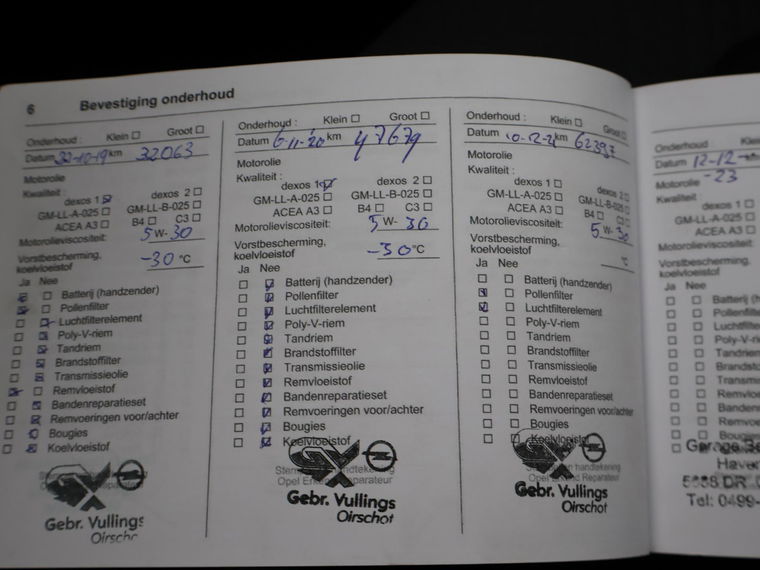 6 Bevestiging onderhoud
Onderhoud : Klein Groot
Datum km 32063
Motorolie
Kwaliteit :
dexos 1 dexos 2
GM-LL-A-025 GM-LL-B-025
ACEA A3 B4 C3
Motorolieviscositeit: 5 W- 30
Vorstbescherming,
koelvloeistof -30 °C
Ja Nee
Batterij (handzender)
Pollenfilter
Luchtfilterelement
Poly-V-riem
Tandriem
Brandstoffilter
Transmissieolie
Remvloeistof
Bandenreparatieset
Remvoeringen voor/achter
Bougies
Koelvloeistof
Gebr. Vullings
Oirschot
Onderhoud : Klein Groot
Datum 6-11-'20 km 47679
Motorolie
Kwaliteit :
dexos 1 dexos 2
GM-LL-A-025 GM-LL-B-025
ACEA A3 B4 C3
Motorolieviscositeit: 5 W- 30
Vorstbescherming,
koelvloeistof -30 °C
Ja Nee
Batterij (handzender)
Pollenfilter
Luchtfilterelement
Poly-V-riem
Tandriem
Brandstoffilter
Transmissieolie
Remvloeistof
Bandenreparatieset
Remvoeringen voor/achter
Bougies
Koelvloeistof
Gebr. Vullings
Oirschot
Onderhoud : Klein Groot
Datum km
Motorolie
Kwaliteit :
dexos 1 dexos 2
GM-LL-A-025 GM-LL-B-025
ACEA A3 B4 C3
Motorolieviscositeit: 5 W- 30
Vorstbescherming,
koelvloeistof °C
Ja Nee
Batterij (handzender)
Pollenfilter
Luchtfilterelement
Poly-V-riem
Tandriem
Brandstoffilter
Transmissieolie
Remvloeistof
Bandenreparatieset
Remvoeringen voor/achter
Bougies
Koelvloeistof
Gebr. Vullings
Oirschot
Onderhoud
Datum 12-12-
Motorolie -23
Kwaliteit :
dexos 1
GM-LL-A-025
ACEA A3
Motorolieviscositeit:
Vorstbescherming,
koelvloeistof
Ja Nee
Garage
Tel: 0499-